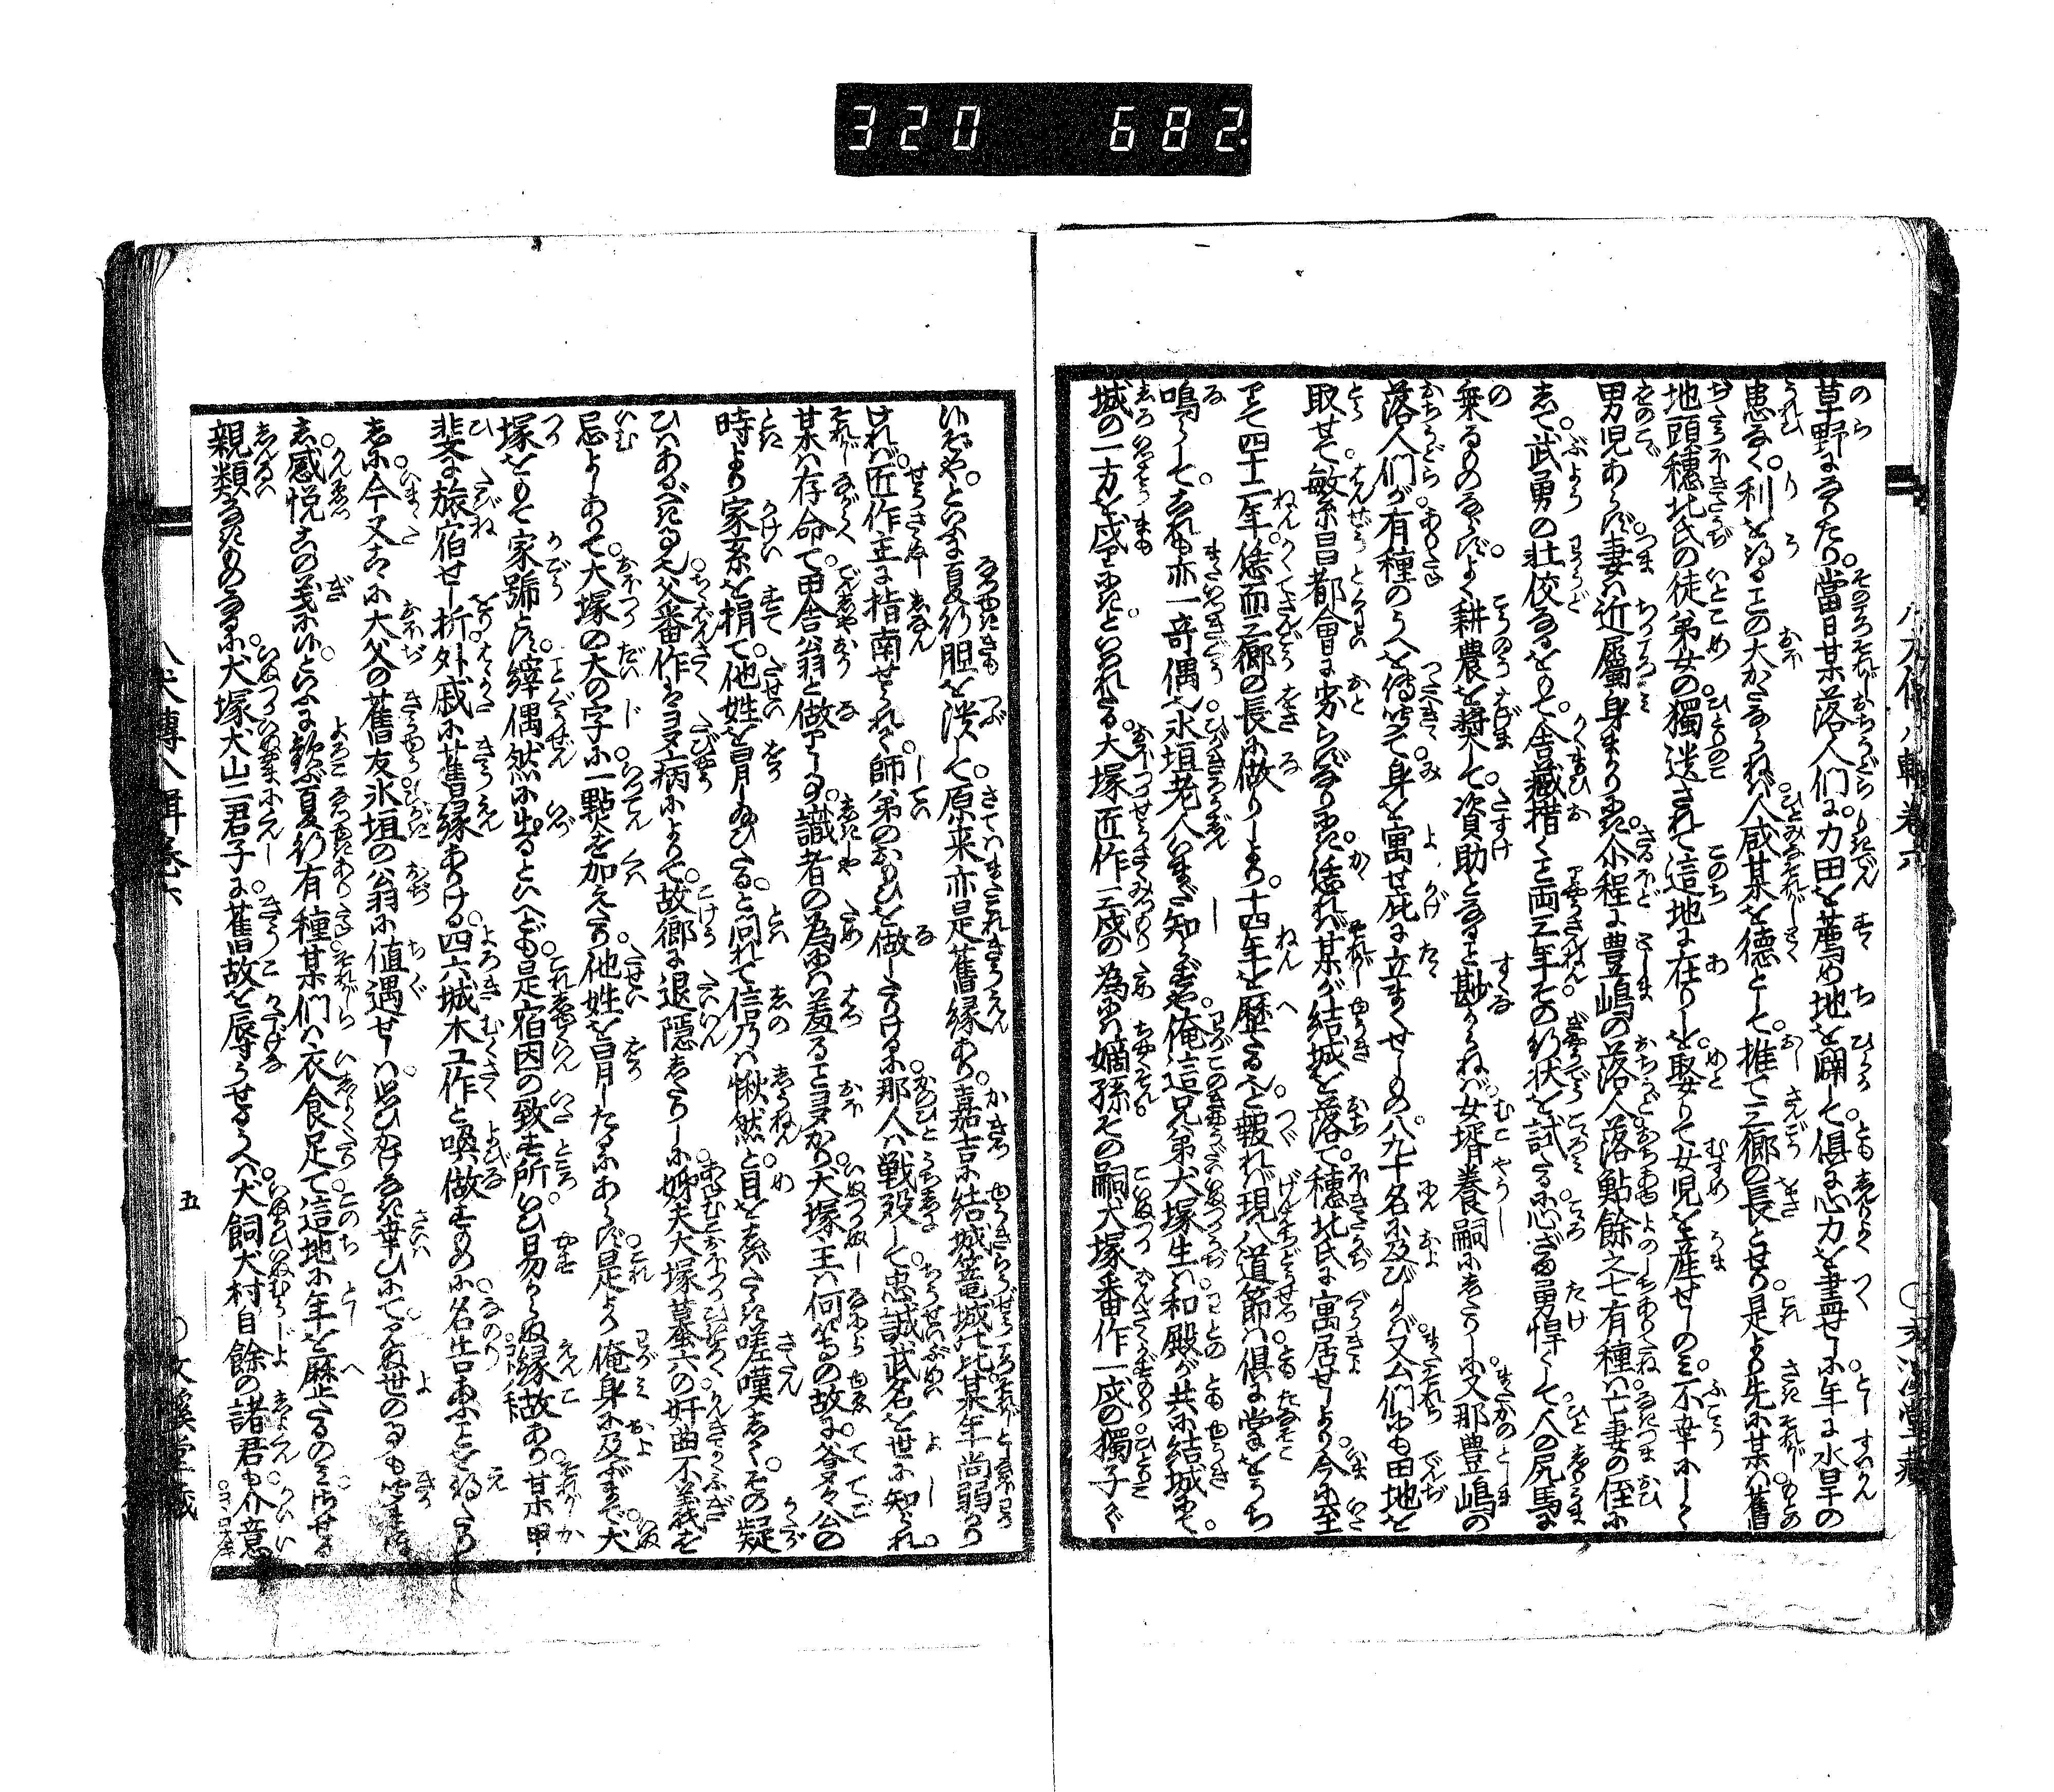 320 682
八犬傳八輯卷六
草野になりたり。當日某落人們に。力田を薦め地を開して。倶に心力を盡せしに年に水旱の
患なく。利を得ること大かたならねば。人咸某を徳として。推て三郷の長とせり。是より先に某は舊
地頭穗北氏の徒弟女の。獨遺されて這地に在りしを。娶りて女児を産せしのみ。不幸にしく
男児あらず。妻は近屬身まかりにき。介程に豊嶋の落人。落鮎餘之七有種は。亡妻の侄に
して。武勇の壮佼なるをもて。舎藏措くこと両三年。その行状を試るに。心ざま勇悍くして人の尻馬に
乗るものならず。よく耕農を奬して。資助となること尠からねば。女壻養嗣にしたりしに。又那豊嶋の
落人們が。有種のうへを傳聞て。身を寓せ庇に立まくせしもの。八九十名に及びしかば。又公們にも田地を
取せて。敏系昌都會に劣らずなりにき。恁れば某が結城を落て。穂北氏に寓居せしより。今に至
りて四十二年。恁而三郷の長に做りしより。十四年を歴たる也。と報れば現八道節は。倶に掌をうち
鳴らして。こも亦一奇偶也。氷垣老人いまだ知らずや。俺這兄弟犬塚生は。和殿が共に結城にて。
城の一方を戍りにきといはれたる。大塚匠作三戍の為には嫡孫。その嗣犬塚番作一戍の獨子で
いぬや。といふに夏行胆を潰して。原来亦是舊縁あり。嘉吉に結城篭城の比。某年尚弱かり
ければ。匠作主に指南せられて。師弟のおもひを做したりけるに。那人は戦歿して。忠誠武名を世に知られ。
某は存命て。田舎翁と做りにたる。識者の為には羞ること多かり。犬塚主は何等の故に。爺々公の
時より家系を捐て。他姓を冒し給ひたる。と問れて信乃は愀然と。目をしばたゝき嗟嘆しく。その疑
ひはあるべき事也。父番作は多病によりて。故郷に退隠したりしに。姉夫大塚蟇六の。奸曲不義を
忌よしありて。大塚の大の字に。一點を加えたり。他姓を冒したるにあらず。是より俺身に及ぶまで。犬
塚をもて家號とす。縡偶然に出るといへども。是宿因の致す所。いひ易からぬ縁故あり。某甲
斐に旅宿せし折。外戚に舊縁ありける。四六城木工作と喚做すものに。名告あふことを得たり
しに。今又こゝに大父の。舊友氷垣の翁に値遇せしは。思ひかけなき幸ひにて。
し。感悦この義に侍り。といふに歡ぶ夏行有種。某們は衣食足て。這地に年を歴たるのみにせる
親類なきものなるに。犬塚犬山二君子に。舊故を辱うせるうへは。犬飼犬村自餘の諸君も。介意
八犬傳八輯卷六
五
文溪堂藏